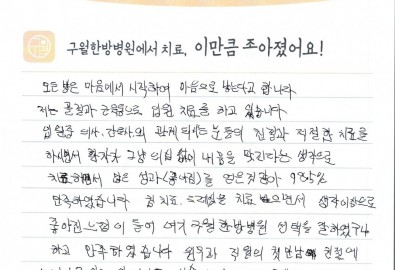 구월한방병원에서 치료, 이만큼 조아졌어요!
모든 병은 마음에서 시작하여 마음으로 낫는다고 합니다
저는 골절과 으로 입원 치료를 하고 있습니다
입원중 의사, 간호사와 관계 되시는 분들의 친절과 적절한 치료를
하시면서 환자는 그냥 의심 없이 내몸을 맡긴다는 생각으로
치료하면서 많은 성과(좋아짐)을 얻은것같아 98.5%
만족하였습니다 침 치료 도수치료 받으면서 생각이상으로
좋아진 느낌이 들어 여기 구월한방병원 선택을 잘하였구나
하고 만족하였습니다 원무과 직원의 첫만남 친절에